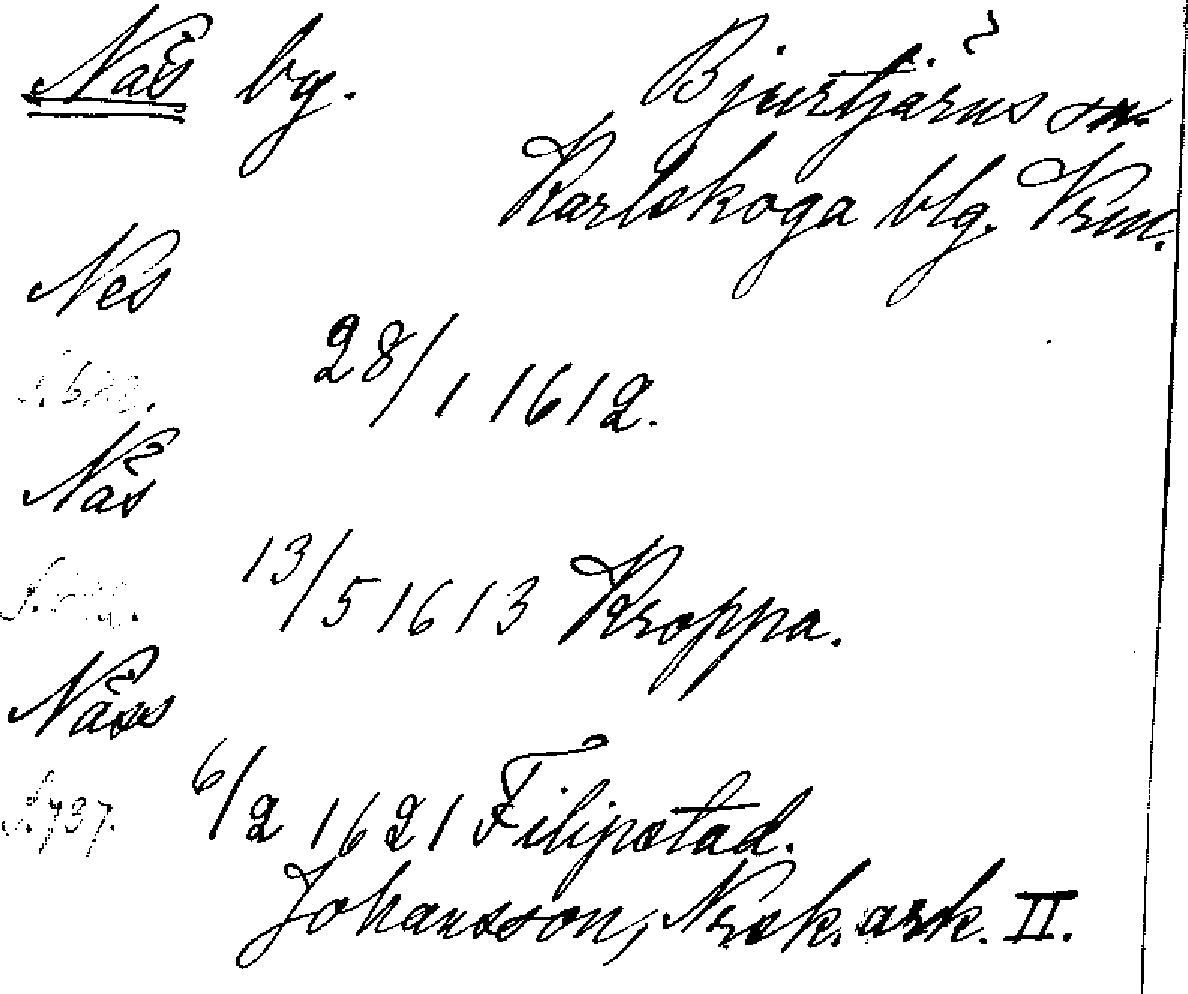 Näs bg. Bjurtjärns sn.
Karlskoga blg. Vrm.
Nes
28/1 1612.
Näs
13/5 1613 Kroppa.
Näss
S. 737. 6/2 1621 Filipstad.
Johansson, Norsk. ark. II.